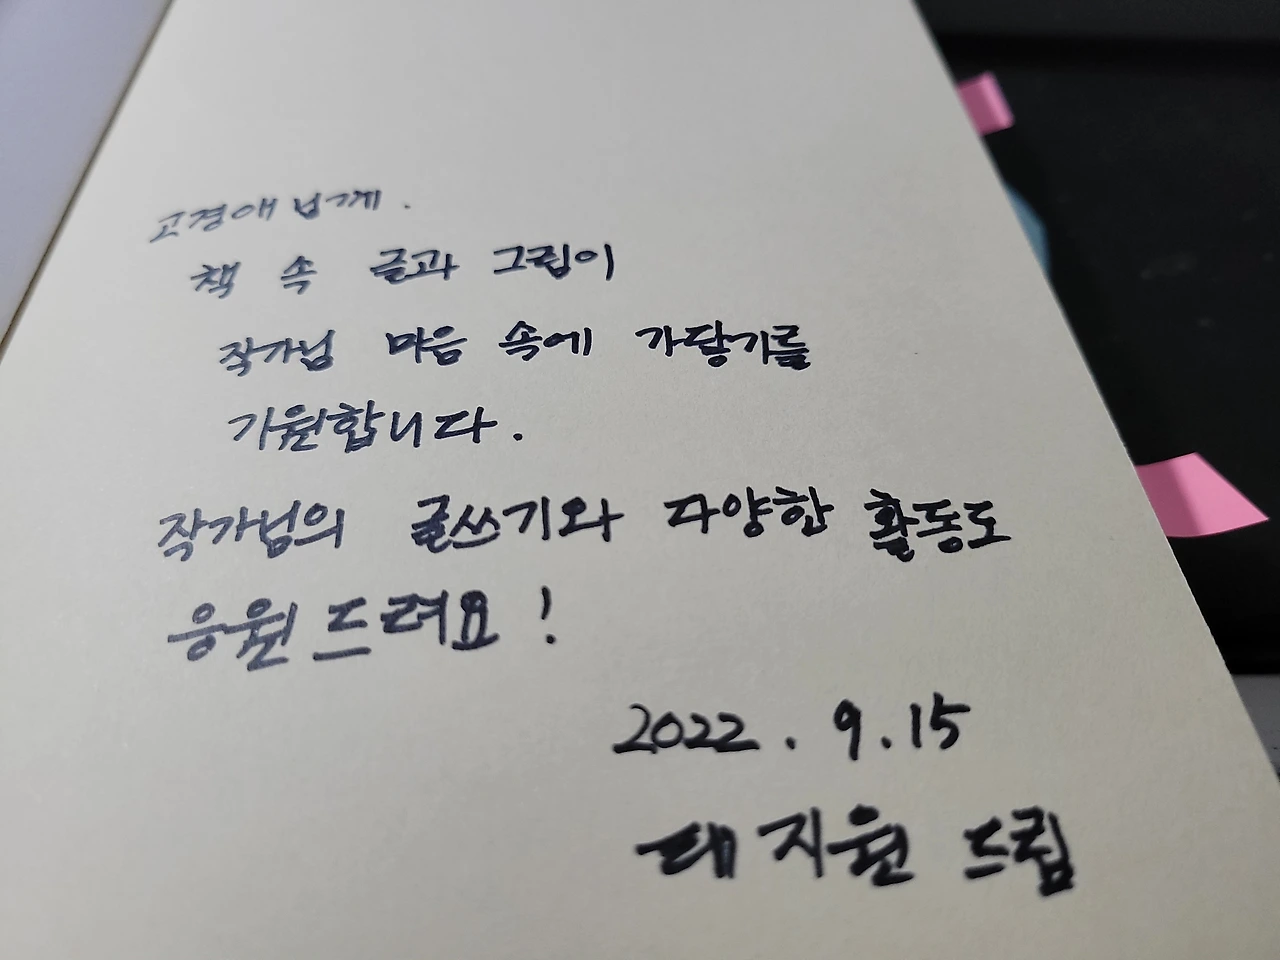 고경애 님께.
책 속 글과 그림이
작가님 마음 속에 가닿기를
기원합니다.
작가님의 글쓰기와 다양한 활동도
응원 드려요!
2022. 9. 15
태지원 드림